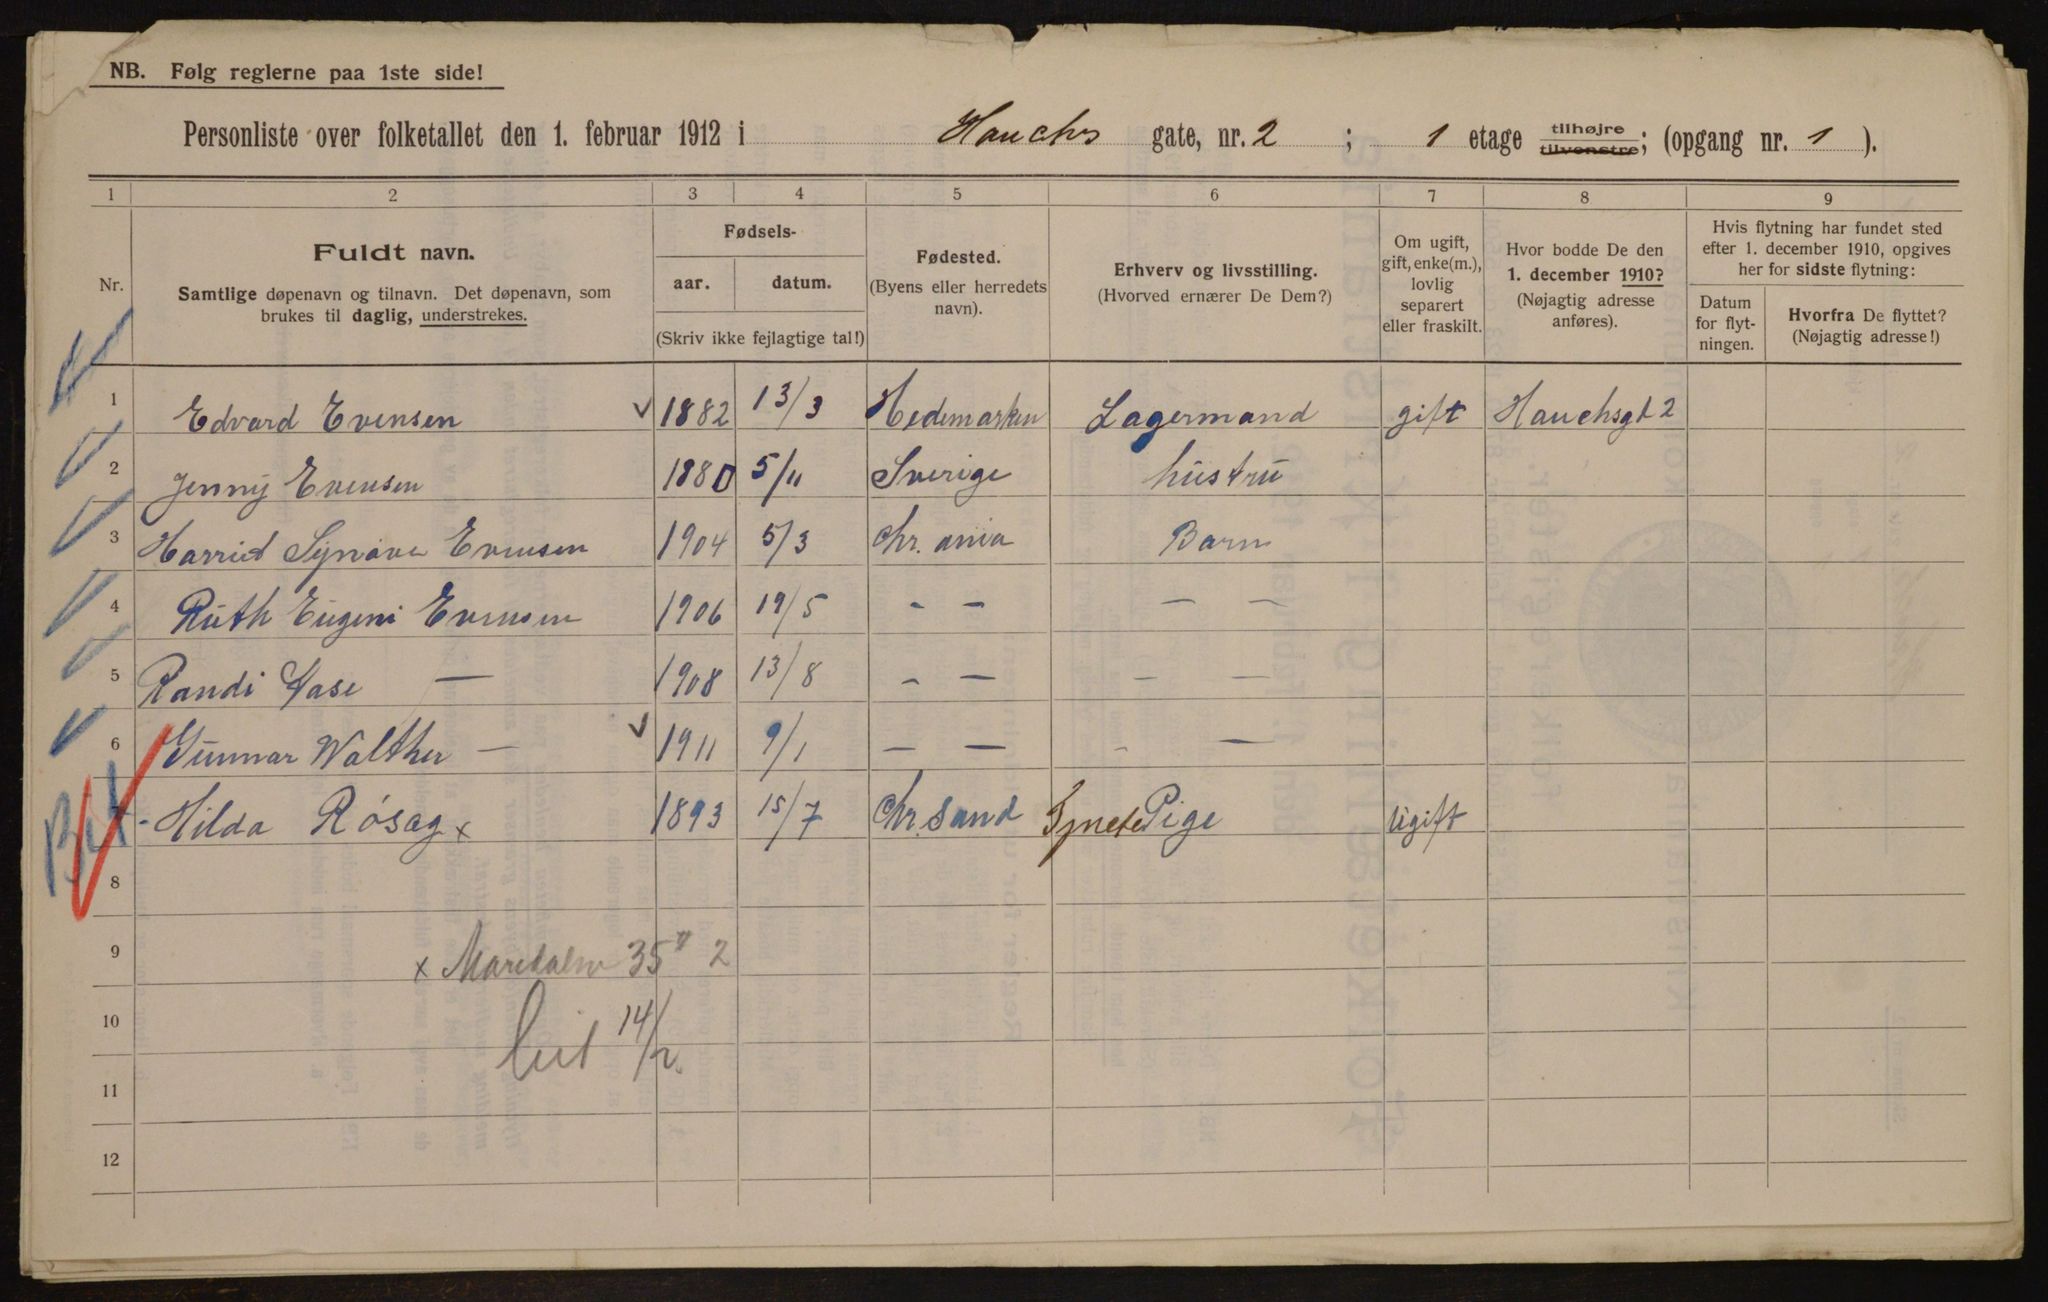 NB. Følg reglerne paa 1ste side!
Personliste over folketallet den 1. februar 1912 i Hauchs gate, nr. 2 ; 1 etage tilhøjre tilvenstre; (opgang nr. 1 ).
1 2 3 4 5 6 7 8 9
Nr.
Fuldt navn.
Samtlige døpenavn og tilnavn. Det døpenavn, som
brukes til daglig, understrekes.
Fødsels-
aar. datum.
(Skriv ikke fejlagtige tal!)
Fødested.
(Byens eller herredets
navn).
Erhverv og livsstilling.
(Hvorved ernærer De Dem?)
Om ugift,
gift, enke(m.),
lovlig
separert
eller fraskilt.
Hvor bodde De den
1. december 1910?
(Nøjagtig adresse
anføres).
Hvis flytning har fundet sted
efter 1. december 1910, opgives
her for sidste flytning:
Datum
for flyt-
ningen.
Hvorfra De flyttet?
(Nøjagtig adresse!)
1 Edvard Evensen 1882 13/3 Hedemarken Lagermand gift Hauchsgt 2
2 Jenny Evensen 1880 5/11 Sverige hustru
3 Harriet Synøve Evensen 1904 5/3 Chr. ania Barn
4 Ruth Eugeni Evensen 1906 19/5 — — — —
5 Randi Aase — 1908 13/8 — — — —
6 Gunnar Walther — 1911 9/1 — — — —
7 Hilda Rósag x 1893 15/7 Chr. sand Pige Ugift
8
9 x Maridalsv 35 2
10 14/2
11
12